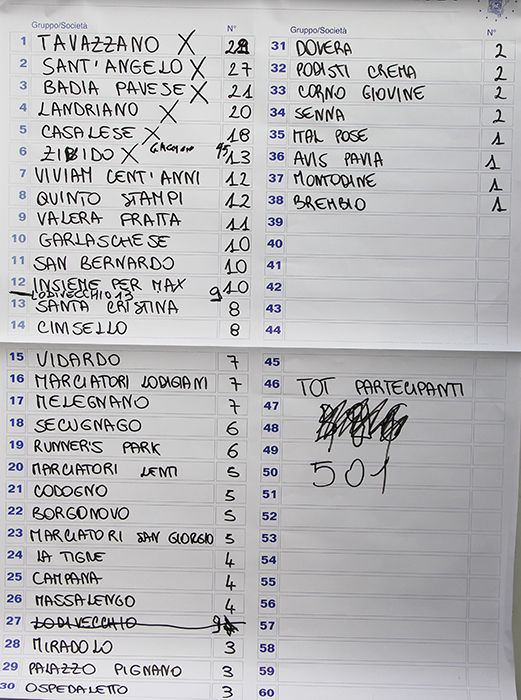 Gruppo/Società N°
1 TAVAZZANO X 28
2 SANT'ANGELO X 27
3 BADIA PAVESE X 21
4 LANDRIANO X 20
5 CASALESE X 18
6 ZIBIDO X 13
7 VIVIAM CENT'ANNI 12
8 QUINTO STAMPI 12
9 VALERA FRATTA 11
10 GARLASCHESE 10
11 SAN BERNARDO 10
12 INSIEME PER MAX 10
LODIVECCHIO 13 9
13 SANTA CRISTINA 8
14 CINISELLO 8
15 VIDARDO 7
16 MARCIATORI LODIGIANI 7
17 MELEGNANO 7
18 SECUGNAGO 6
19 RUNNER'S PARK 6
20 MARCIATORI LENTI 5
21 CODOGNO 5
22 BORGONOVO 5
23 MARCIATORI SAN GIORGIO 5
24 LA TIGRE 4
25 CAMPANA 4
26 MASSALENGO 4
27 LODIVECCHIO 9
28 MIRADOLO 3
29 PALAZZO PIGNANO 3
30 OSPEDALETTO 3
Gruppo/Società N°
31 DOVERA 2
32 PODISTI CREMA 2
33 CORNO GIOVINE 2
34 SENNA 2
35 ITAL POSE 1
36 AVIS PAVIA 1
37 MONTODINE 1
38 BREMBIO 1
39
40
41
42
43
44
45
46 TOT PARTECIPANTI
47
48
49
50 501
51
52
53
54
55
56
57
58
59
60